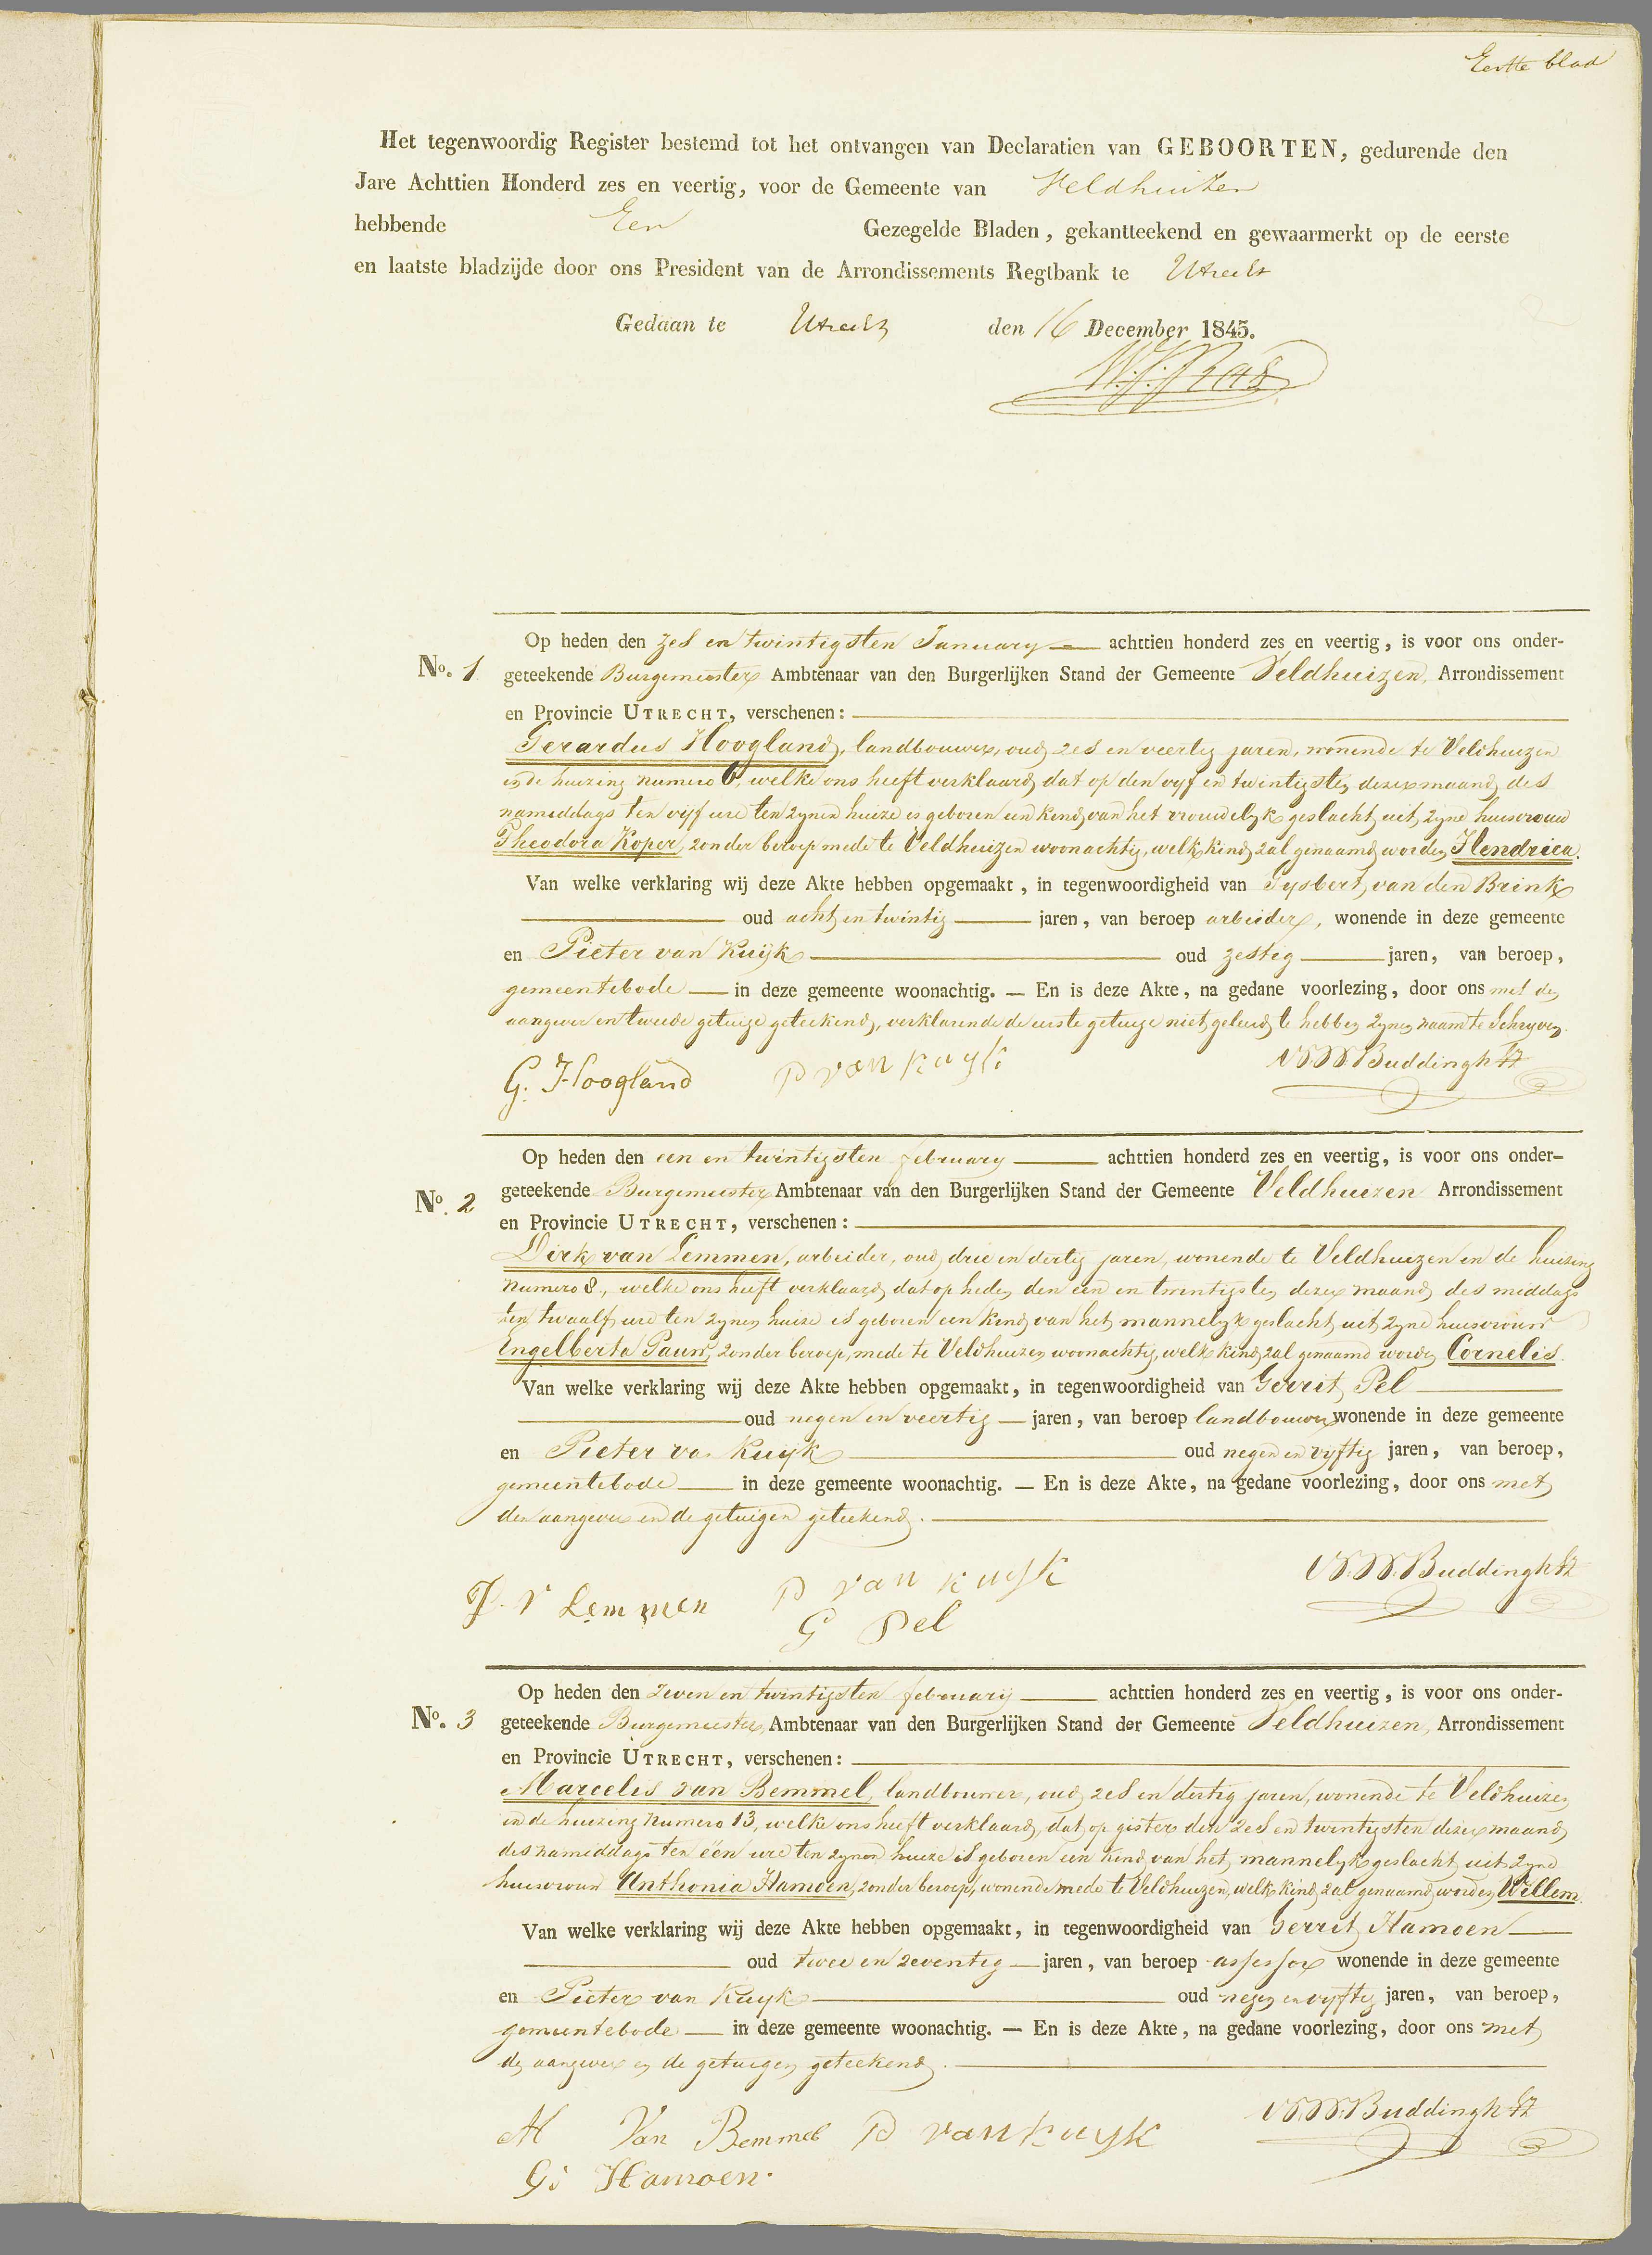 Eerste blad
Het tegenwoordig Register bestemd tot het ontvangen van Declaratien van GEBOORTEN, gedurende den
Jare Achttien Honderd zes en veertig, voor de Gemeente van Veldhuizen
hebbende Een Gezegelde Bladen, gekantteekend en gewaarmerkt op de eerste
en laatste bladzijde door ons President van de Arrondissements Regtbank te Utrecht
Gedaan te Utrecht den 16 December 1845.
Op heden den zes en twintigsten January achttien honderd zes en veertig, is voor ons onder-
No. 1 geteekende Burgemeester Ambtenaar van den Burgerlijken Stand der Gemeente Veldhuizen, Arrondissement
en Provincie UTRECHT, verschenen:
Gerardus Hoogland, landbouwer, oud zes en veertig jaren, wonende te Veldhuizen
in de huizing numero 6, welke ons heeft verklaard, dat op den vyf en twintigsten dezer maand, des
namiddags ten vijf ure ten zynen huize is geboren een kind van het vrouwelyk geslacht, uit zyne huisvrouw
Theodora Koper, zonder beroep mede te Veldhuizen woonachtig, welk kind zal genaamd worden Hendrica.
Van welke verklaring wij deze Akte hebben opgemaakt, in tegenwoordigheid van Gysbert van den Brink
oud acht en twintig jaren, van beroep arbeider, wonende in deze gemeente
en Pieter van Kuijk oud zestig jaren, van beroep,
gemeentebode in deze gemeente woonachtig. — En is deze Akte, na gedane voorlezing, door ons met den
aangever en tweede getuige geteekend, verklarende de eerste getuige niet geleerd te hebben zynen naam te schryven.
G. Hoogland P van kuyk W.W. Buddingh Fz
Op heden den een en twintigsten february achttien honderd zes en veertig, is voor ons onder-
No. 2 geteekende Burgemeester Ambtenaar van den Burgerlijken Stand der Gemeente Veldhuizen Arrondissement
en Provincie UTRECHT, verschenen:
Dirk van Lemmen, arbeider, oud drie en dertig jaren, wonende te Veldhuizen in de huizing
numero 8, welke ons heeft verklaard, dat op heden den een en twintigsten dezer maand, des middags
ten twaalf ure ten zynen huize is geboren een kind van het mannelyk geslacht uit zyne huisvrouw
Engelberta Pauw, zonder beroep, mede te Veldhuizen woonachtig, welk kind zal genaamd worden Cornelis.
Van welke verklaring wij deze Akte hebben opgemaakt, in tegenwoordigheid van Gerrit Pel
oud negen en veertig jaren, van beroep landbouwer wonende in deze gemeente
en Pieter van Kuijk oud negen en vyftig jaren, van beroep,
gemeentebode in deze gemeente woonachtig. — En is deze Akte, na gedane voorlezing, door ons met
den aangever en de getuigen geteekend.
D. v Lemmen P van kuyk W.W. Buddingh Fz
G Pel
Op heden den zeven en twintigsten february achttien honderd zes en veertig, is voor ons onder-
No. 3 geteekende Burgemeester, Ambtenaar van den Burgerlijken Stand der Gemeente Veldhuizen, Arrondissement
en Provincie UTRECHT, verschenen:
Marcelis van Bemmel, landbouwer, oud zes en dertig jaren, wonende te Veldhuizen
in de huizing numero 13, welke ons heeft verklaard, dat op gister den zes en twintigsten dezer maand,
des namiddags ten één ure ten zynen huize is geboren een kind van het mannelyk geslacht uit zyne
huisvrouw Anthonia Hamoen, zonder beroep, wonende mede te Veldhuizen, welk kind zal genaamd worden Willem.
Van welke verklaring wij deze Akte hebben opgemaakt, in tegenwoordigheid van Gerrit Hamoen
oud twee en zeventig jaren, van beroep assessor wonende in deze gemeente
en Pieter van Kuyk oud negen en vyftig jaren, van beroep,
gemeentebode in deze gemeente woonachtig. — En is deze Akte, na gedane voorlezing, door ons met
den aangever en de getuigen geteekend.
M Van Bemmel P van kuyk W.W. Buddingh Fz
G: Hamoen.